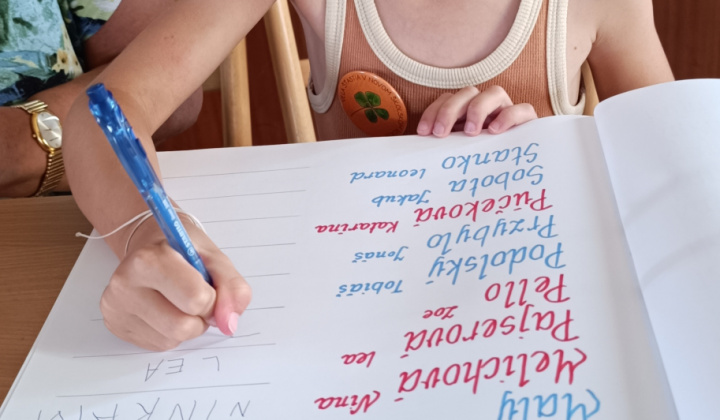 Malý
Melichová Nina NINKA
Pajserová Lea LEA
Pello Zoe
Podolský Tobiáš
Przybylo Jonáš
Pučeková Katarina
Sobota Jakub
Stanko Leonard